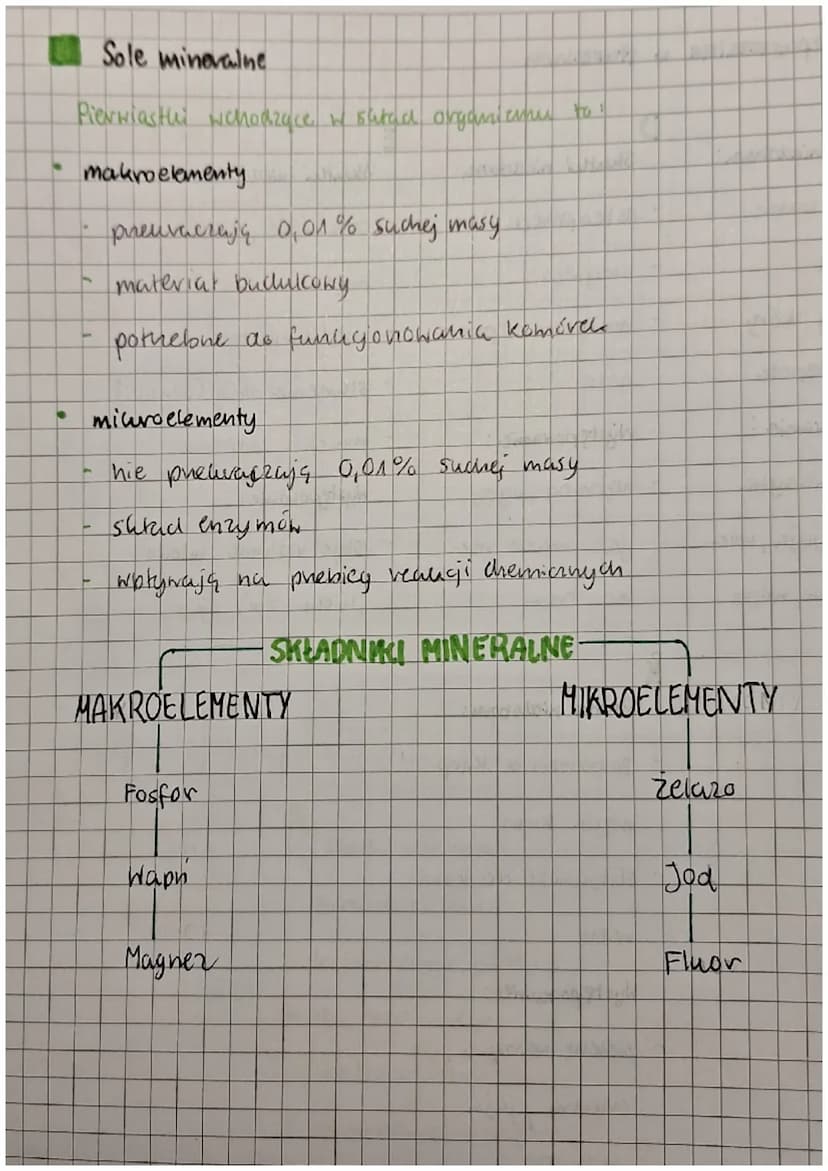 Sole mineralne
Pierwiastki wchodzące w skład organizmu to:
• makroelementy
- przekraczają 0,01% suchej masy
- materiał budulcowy
- potrzebne do funkcjonowania komórek
• mikroelementy
- nie przekraczają 0,01% suchej masy
- skład enzymów
- wpływają na przebieg reakcji chemicznych
SKŁADNIKI MINERALNE
MAKROELEMENTY MIKROELEMENTY
Fosfor Żelazo
Wapń Jod
Magnez Fluor